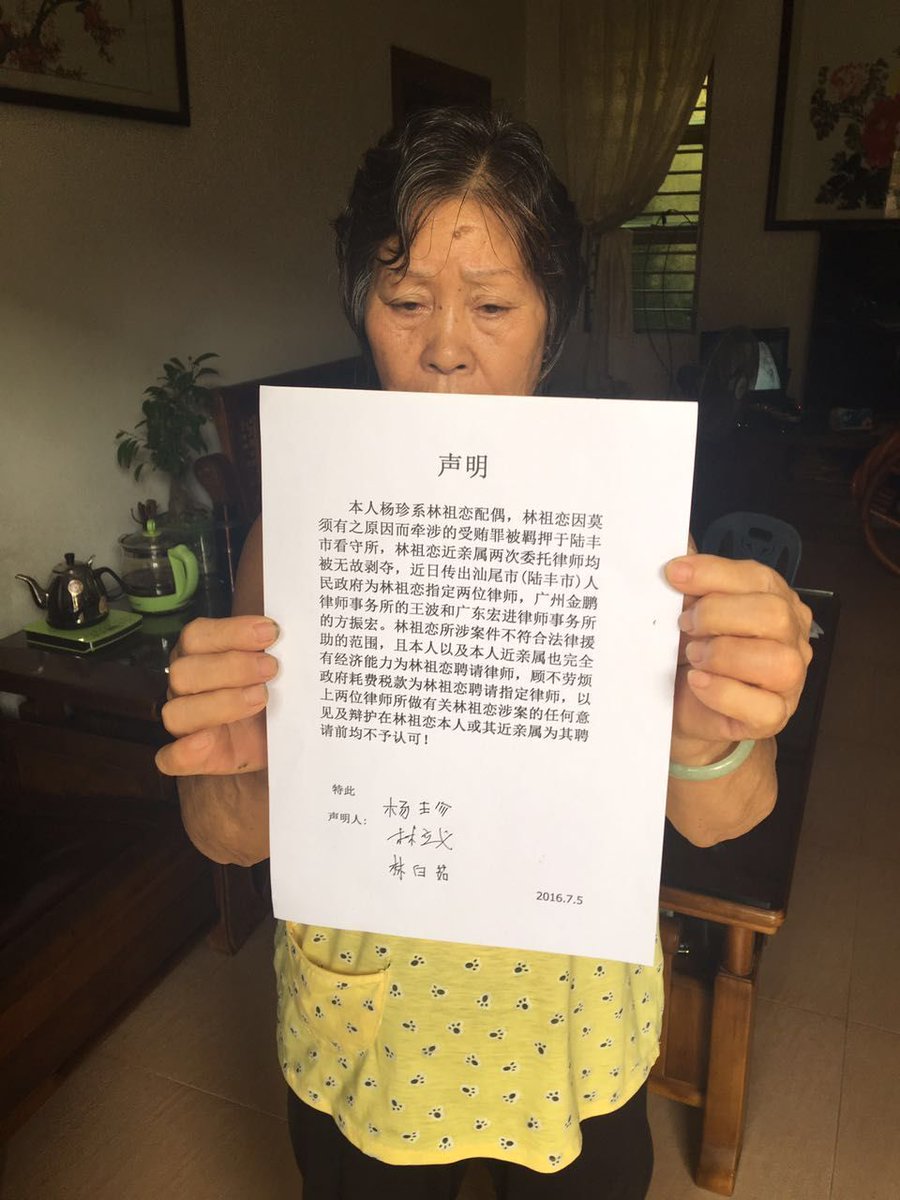 声明
本人杨珍系林祖恋配偶，林祖恋因莫
须有之原因而牵涉的受贿罪被羁押于陆丰
市看守所，林祖恋近亲属两次委托律师均
被无故剥夺，近日传出汕尾市(陆丰市)人
民政府为林祖恋指定两位律师，广州金鹏
律师事务所的王波和广东宏进律师事务所
的方振宏。林祖恋所涉案件不符合法律援
助的范围，且本人以及本人近亲属也完全
有经济能力为林祖恋聘请律师，顾不劳烦
政府耗费税款为林祖恋聘请指定律师，以
上两位律师所做有关林祖恋涉案的任何意
见及辩护在林祖恋本人或其近亲属为其聘
请前均不予认可！
特此
声明人：杨珍
2016.7.5